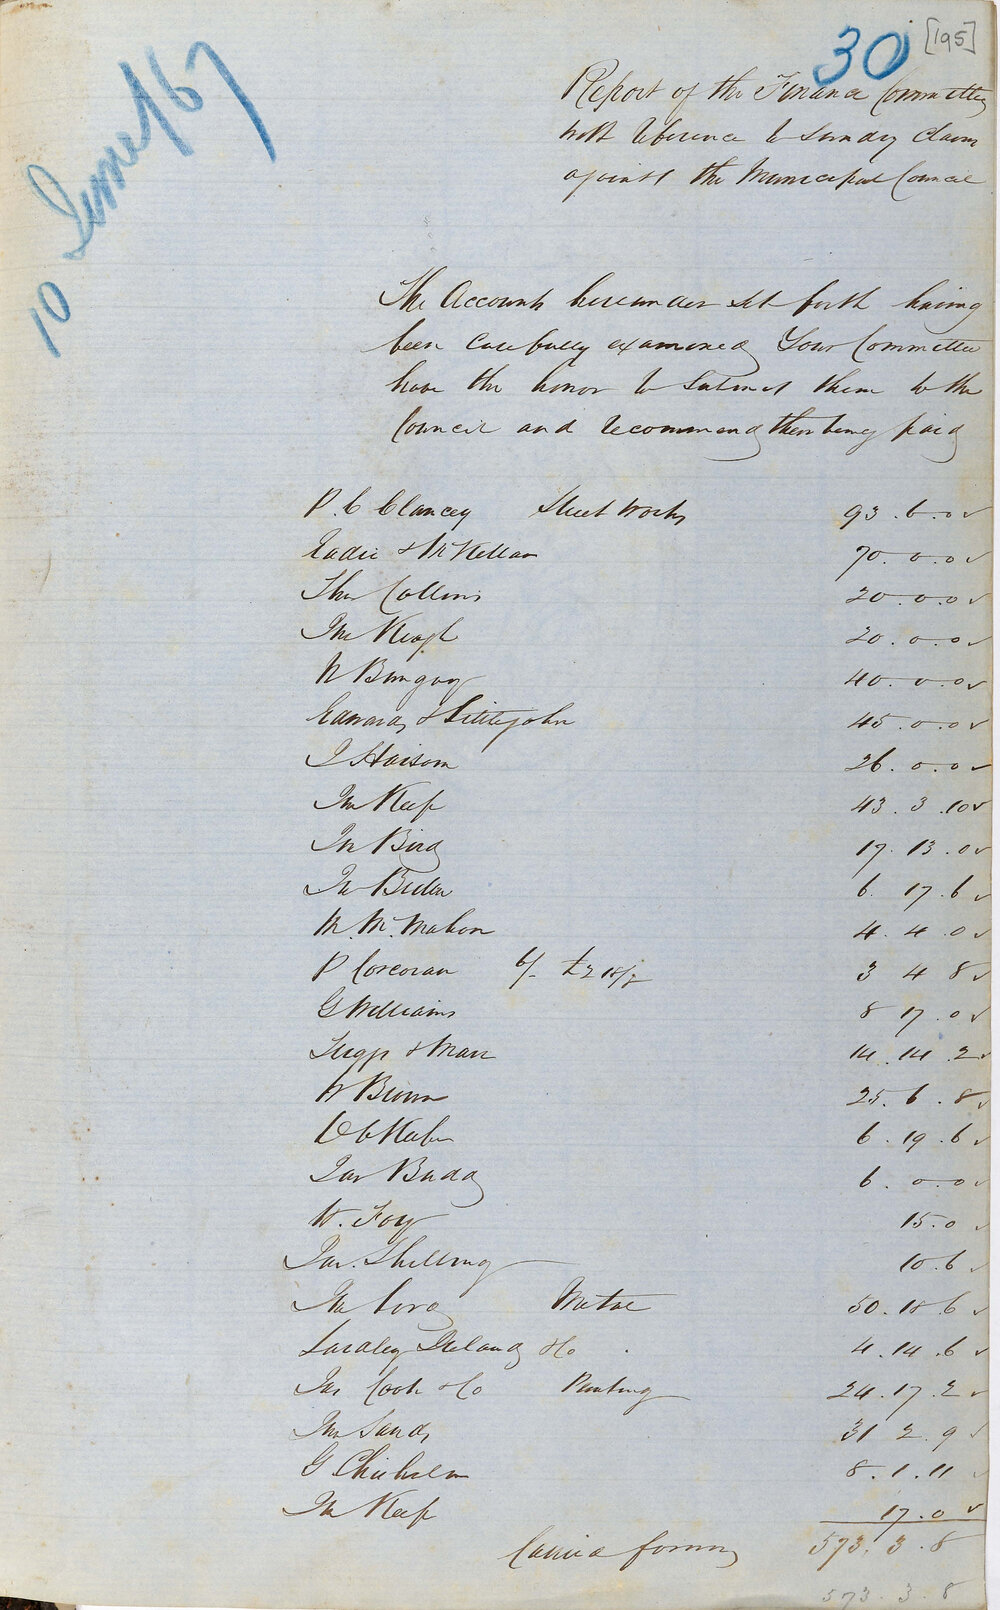 30 [195]
10 June / 67
Report of the Finance Committee
with reference to Sundry Claims
against the Municipal Council
The Accounts hereunder set forth having
been Carefully examined Your Committee
have the honor to Submit them to the
Council and recommend their being paid
P. C Clancey Street Works 93 . 6 . 0 ✓
Eadie & McKellar 70 . 0 . 0 ✓
Thos Collins 20 . 0 . 0 ✓
Jno Keogh 20 . 0 . 0 ✓
40 . 0 . 0 ✓
Edwards & Littlejohn 45 . 0 . 0 ✓
26 . 0 . 0 ✓
Jno Keep 43 . 3 . 10 ✓
Jno Bird 17 . 13 . 0 ✓
Jno 6 . 17 . 6 ✓
M. McMahon 4 . 4 . 0 ✓
P Corcoran 3 4 8 ✓
G Williams 8 17 . 0 ✓
14 . 14 . 2 ✓
W Brown 25 . 6 . 8 ✓
6 . 19 . 6 ✓
Jas Budd 6 . 0 . 0 ✓
W. Foy 15 . 0 ✓
Jas. Skelling 10 . 6 ✓
Jno Metal 50 . 18 6 ✓
Lardley Ireland & Co 4 . 14 . 6 ✓
Jas Cook & Co Printing 24 . 17 . 2 ✓
Jno Sands 31 2 . 9 ✓
G Chisholm 8 . 1 . 11 ✓
Jno Keep 17 . 0 ✓
Carried forward 573 . 3 . 8
573 . 3 . 8